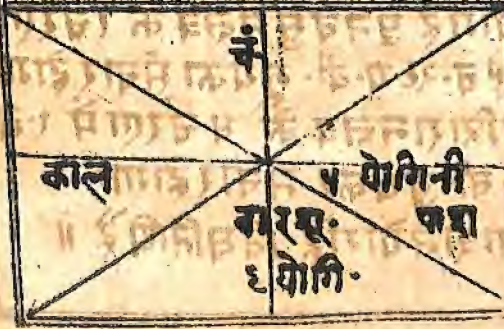 चं
काल ५ योगिनी
बारशू· पाशा
६ योगि·